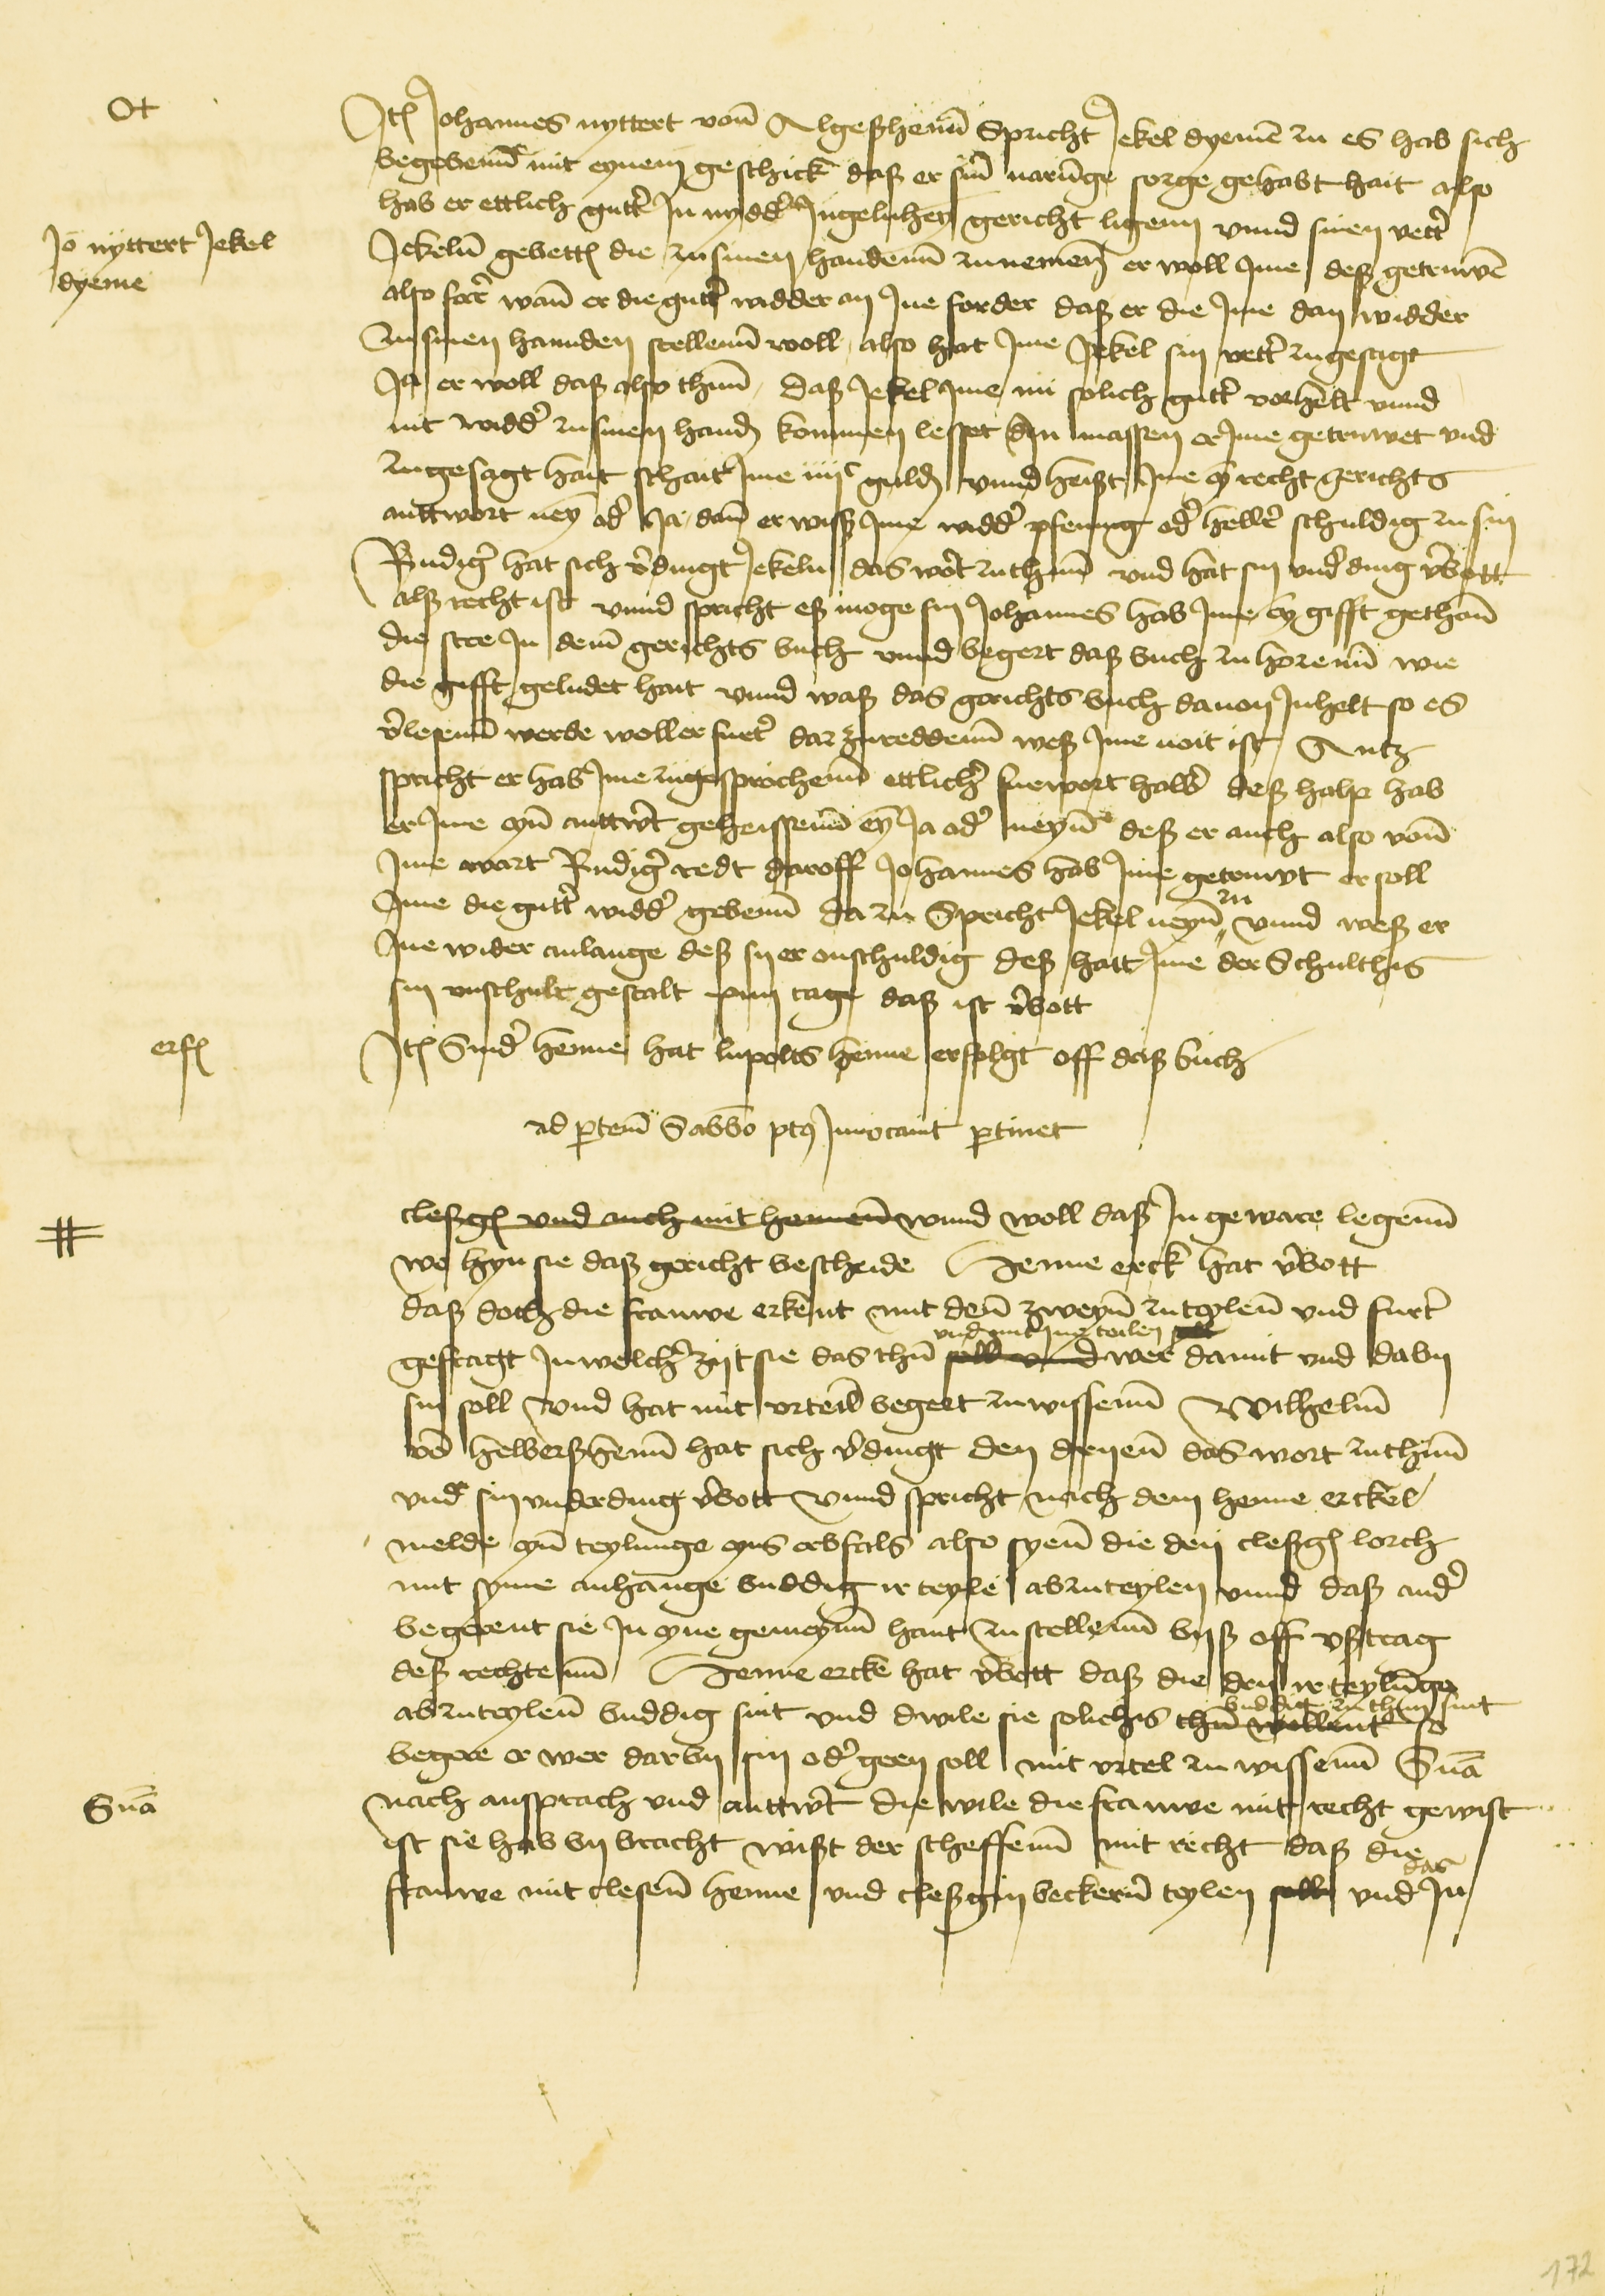 Ot
Itē Johannes nyttert vonn Algeßhenñ Spricht Jekel dyemē zu es hab sich
begebennd mit eynem geschick daß er sinr narunge sorge gehabt hait also
hab er ettlich gutt' In nydd' Ingelnhey gericht ligenn vnnd sinen vett'
Jo nyttert Jekel
dyeme
Jekeln̄ gebettē die zu sinen handenn̄ zunemen er woll Ime deß getruwē
also ferr' wan̄ er die gutt' widder an Ine forder daß er die Ime dan widder
zu sinen hannden stellenn̄ woll also hat Ime Jekel sin vett' zugesagt
Ja er woll daß also thun̄ daß Jekel Ime nū solich gutt' vorhelt vnnd
nit widd' zu sinen hand kommen lesset In massen er Ime getruwet vnd
zugesagt hait schait Ime iiijc guldē vnnd heißt Ime ey recht gerichts
anttwort ney od' Ja dan̄ er wiss Ime widd' pfennig od' heller schuldig zu sin
Rudig' hat sich v'dingt Jekeln das wort zuthun̄ vnd hat sin vnd'ding v'bott
alß recht ist vnnd spricht eß moge sin Johannes hab Ime ey gifft gethan̄
die stee In dem̄ gerichts buch vnnd begert daß buch zu horenn̄ wie
die gifft geludet hait vnnd waß das gerichts buch dauon Inhelt so es
v'lesenn̄ werde woll er furt' dar zureddenn̄ weß Ime noit ist Antz
spricht er hab Ime zugesprochenn̄ ettlich' furwort halb' deß halp hab
er Ime eyn̄ anttw't geheissenn̄ ey Ja od' neyn̄ deß er auch also von̄
Ime wart Rudig' redt daroff Johannes hab Ime getruwt er soll
Ime die gutt' widd' gebenn̄ da zu Spricht Jekel neyn̄ vnnd weß er zu
Ine wider anlange deß sy er onschuldig deß hatt Ime der Schulthis
sin vnschult gestalt xiiij tage daß ist v'bott
erfē
Itē Snid' henne hat lupolts henne erfolgt off daß buch
ad ptem̄ Sabbo pt9 Inuocauit ptinet
cleßgē vnd auch mit hennen̄ vnnd woll daß In geware legenn̄
#
wo hyn sie daß gericht bescheide Henne erck hat v'bott
daß doch die frauwe erkent mit den̄ zweyn̄ zuteylen̄ vnd furt'
gefragt In welch' zijt sie das thun̄ soll vnd vnd mit Ine teilen soll wer damit vnd daby
sin soll vnd hat mit vrteil begert zuwissenn̄ Wilhelm̄
vō helbersheimñ hat sich v'dingt den dryen̄ das wort zuthun̄
vnd sin vnderding v'bott vnnd spricht nach dem henne erckel
melde eyn̄ teylunge eyns erbfals also syen̄ die den cleßgē lorch
mit syme anhange buddig ir teyle abzuteylen vnnd daß and'
begerent sie In eyne gemeynn̄ hant zu stellenn̄ byß off vßtrag
deß rechtenn̄ Henne erck hat v'bott daß die dry ir teylūnge
abzuteylen̄ buddig sint vnd dwile sie solichis thun̄ wollent buddig zuthun sint so
begere er wer darby sin od' geen soll mit vrtel zu wissenn̄ Snā
Snā
nach ansprach vnd anttw't die wile die frauwe mit recht gewist
ist sie hab by bracht wißt der scheffenn̄ mit recht daß die
frauwe mit clesen̄ henne vnd cleßgin beckern̄ teylen soll vnd das In
172